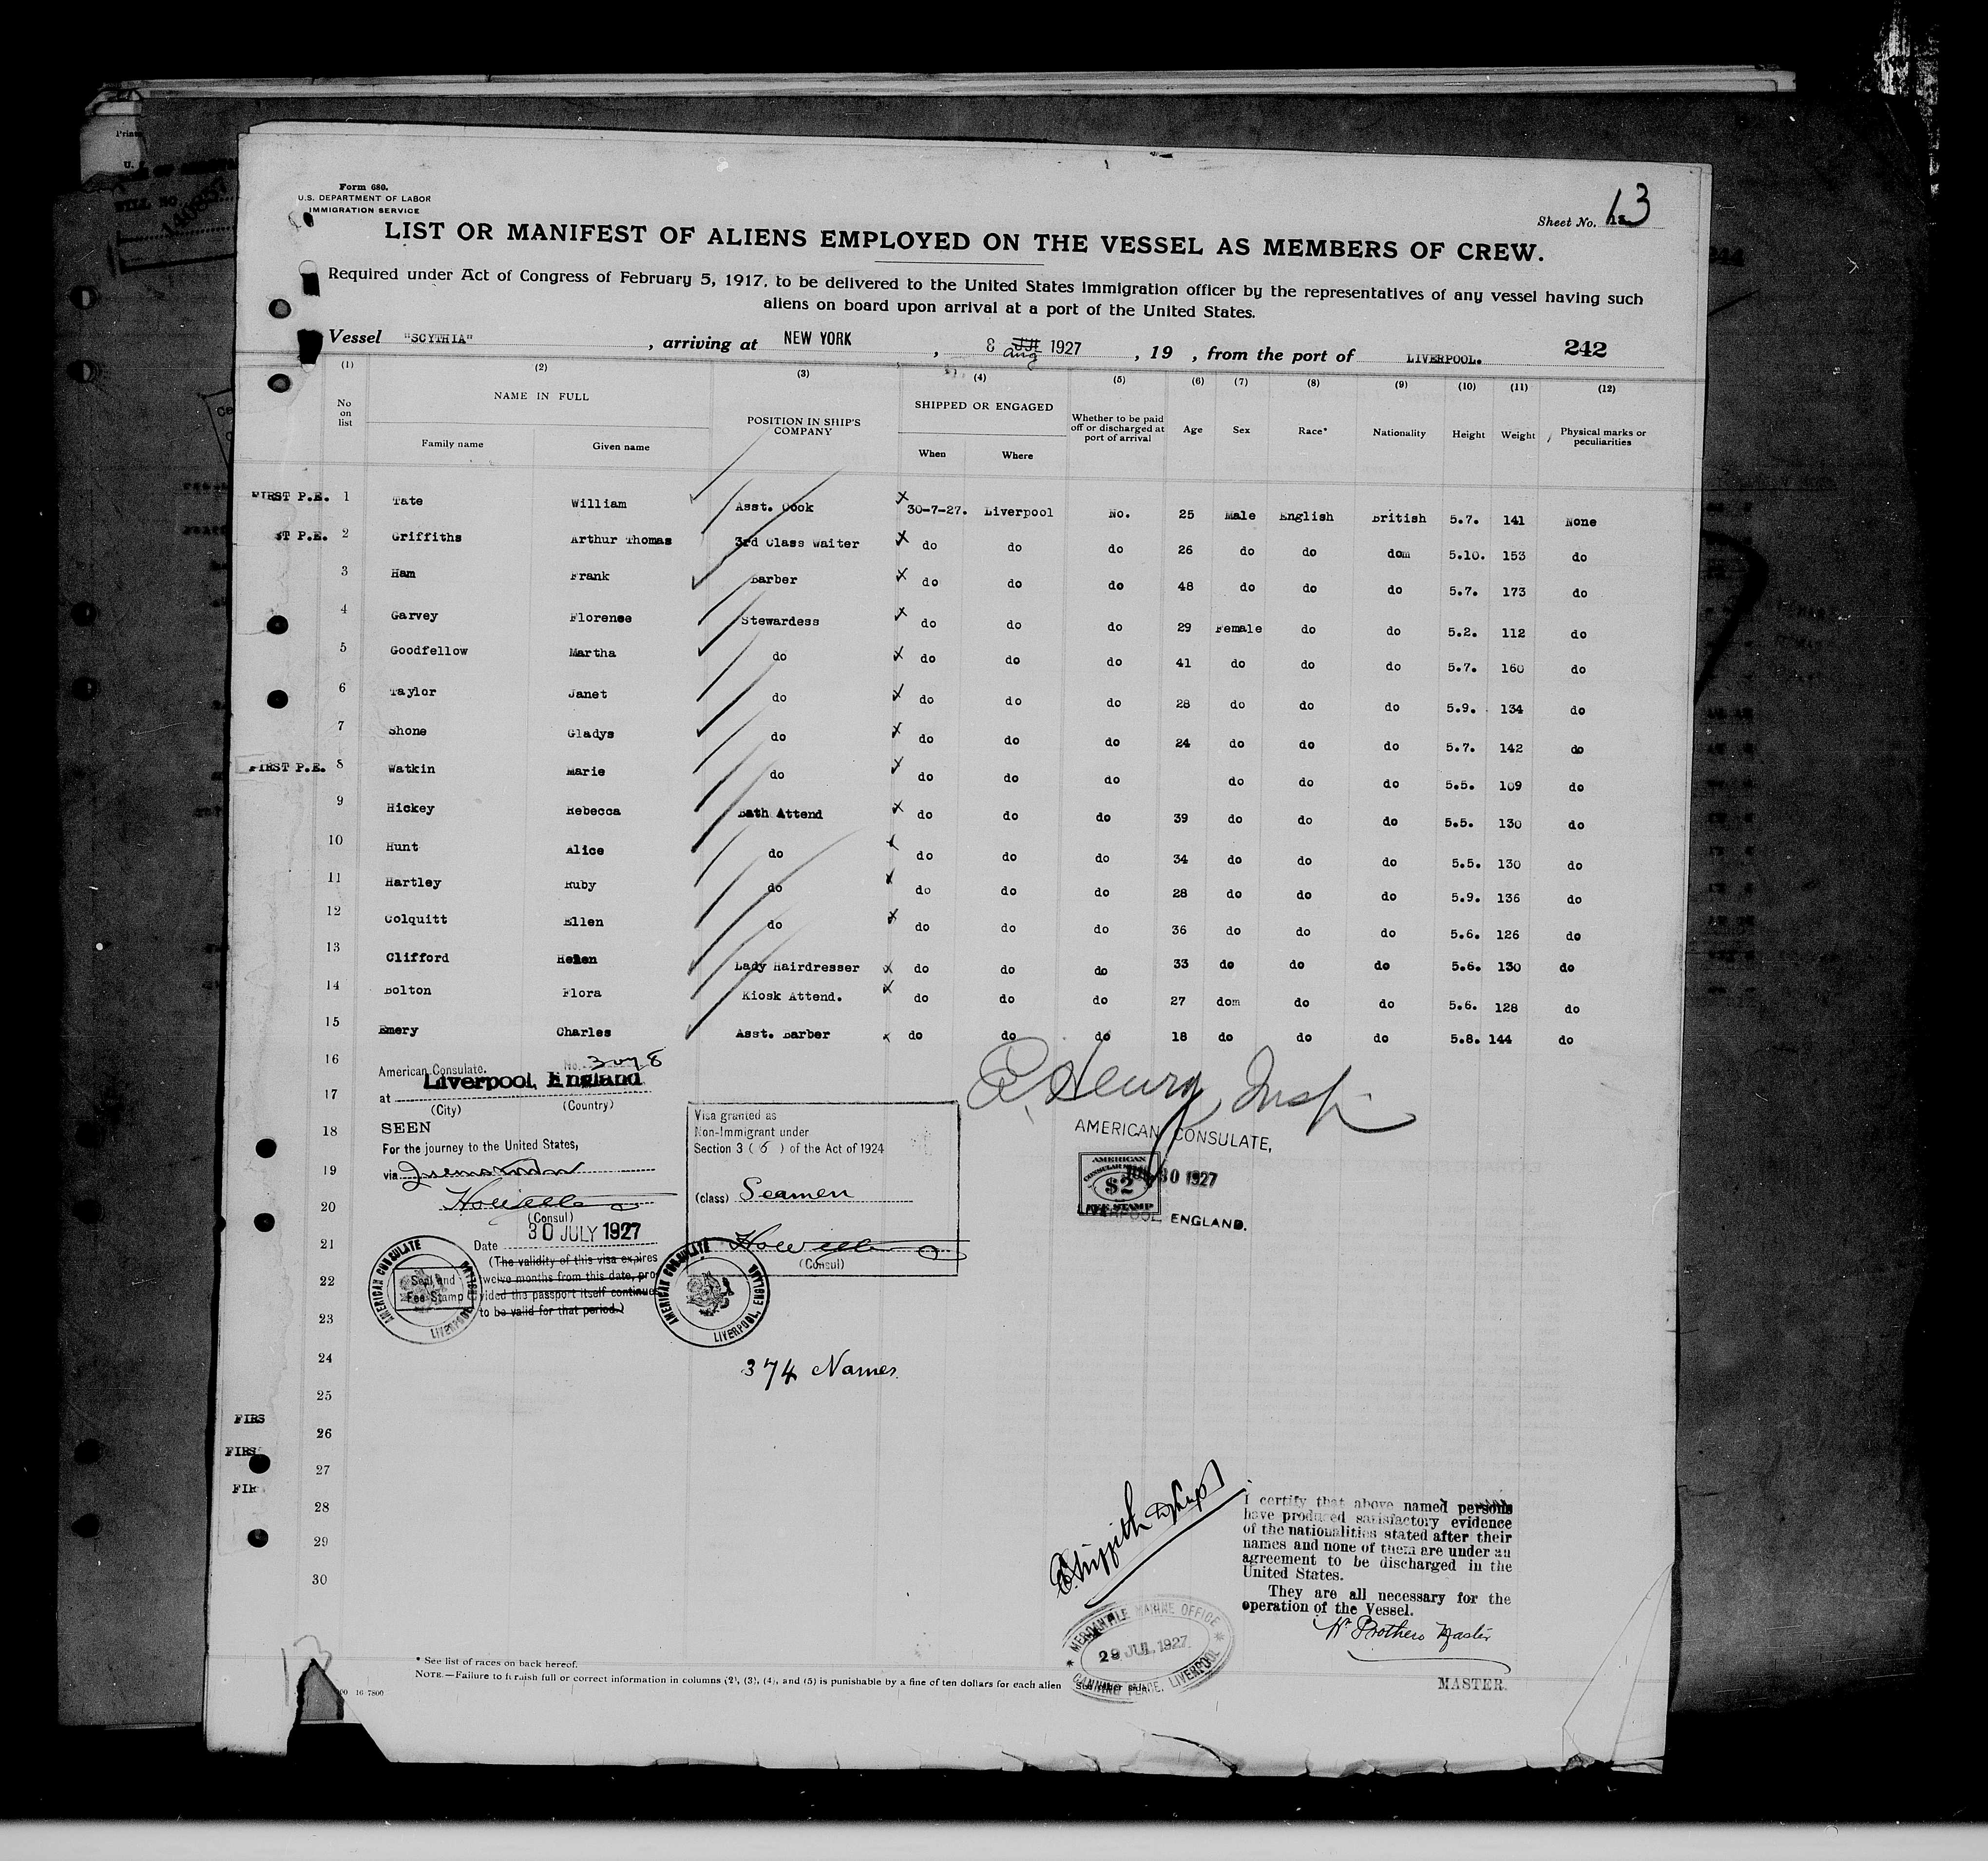 Form 680.
U.S. DEPARTMENT OF LABOR
IMMIGRATION SERVICE
Sheet No. 13
LIST OR MANIFEST OF ALIENS EMPLOYED ON THE VESSEL AS MEMBERS OF CREW.
Required under Act of Congress of February 5, 1917, to be delivered to the United States immigration officer by the representatives of any vessel having such
aliens on board upon arrival at a port of the United States.
Vessel "SCYTHIA", arriving at NEW YORK, 8 JUL Aug 1927, 19 , from the port of LIVERPOOL. 242
(1) (2) (3) (4) (5) (6) (7) (8) (9) (10) (11) (12)
No on list NAME IN FULL Family name Given name POSITION IN SHIP'S COMPANY SHIPPED OR ENGAGED When Where Whether to be paid off or discharged at port of arrival Age Sex Race* Nationality Height Weight Physical marks or peculiarities
FIRST P.E. 1 Tate William Asst. Cook X 30-7-27. Liverpool No. 25 Male English British 5.7. 141 None
ST P.E. 2 Griffiths Arthur Thomas 3rd Class Waiter X do do do 26 do do dom 5.10. 153 do
3 Ham Frank Barber X do do do 48 do do do 5.7. 173 do
4 Garvey Florence Stewardess X do do do 29 Female do do 5.2. 112 do
5 Goodfellow Martha do X do do do 41 do do do 5.7. 160 do
6 Taylor Janet do X do do do 28 do do do 5.9. 134 do
7 Shone Gladys do X do do do 24 do do do 5.7. 142 do
FIRST P.E. 8 Watkin Marie do X do do do do do do 5.5. 109 do
9 Hickey Rebecca Bath Attend X do do do 39 do do do 5.5. 130 do
10 Hunt Alice do X do do do 34 do do do 5.5. 130 do
11 Hartley Ruby do X do do do 28 do do do 5.9. 136 do
12 Colquitt Ellen do X do do do 36 do do do 5.6. 126 do
13 Clifford Helen Lady Hairdresser X do do do 33 do do do 5.6. 130 do
14 Bolton Flora Kiosk Attend. X do do do 27 dom do do 5.6. 128 do
15 Emery Charles Asst. Barber x do do do 18 do do do 5.8. 144 do
16
17
18
19
20
21
22
23
24
25
26
27
28
29
30
American Consulate. No. 3078
at Liverpool, England
(City) (Country)
SEEN
For the journey to the United States,
via
(Consul)
Date 30 JULY 1927
(The validity of this visa expires
twelve months from this date, pro-
vided the passport itself continues
to be valid for that period.)
Seal and
Fee Stamp
AMERICAN CONSULATE LIVERPOOL, ENGLAND
Visa granted as
Non-Immigrant under
Section 3 (5) of the Act of 1924
(class) Seamen
(Consul)
AMERICAN CONSULATE LIVERPOOL, ENGLAND
Henry, Insp
AMERICAN CONSULATE,
AMERICAN
CONSULAR
$2
FEE STAMP
JUL 30 1927
LIVERPOOL, ENGLAND.
374 Names.
FIRS
FIRS
FIR
Griffith
MERCANTILE MARINE OFFICE
29 JUL 1927
CANNING PLACE, LIVERPOOL
I certify that above named persons
have produced satisfactory evidence
of the nationalities stated after their
names and none of them are under an
agreement to be discharged in the
United States.
They are all necessary for the
operation of the Vessel.
W. Prothero Master
MASTER.
* See list of races on back hereof.
NOTE.—Failure to furnish full or correct information in columns (2), (3), (4), and (5) is punishable by a fine of ten dollars for each alien
16-7800